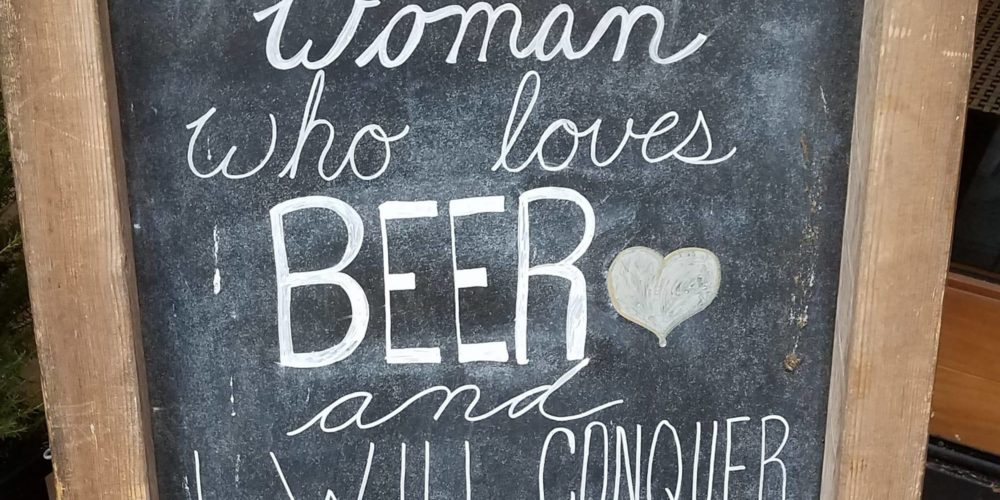 Woman
who loves
BEER
and
I WILL CONQUER